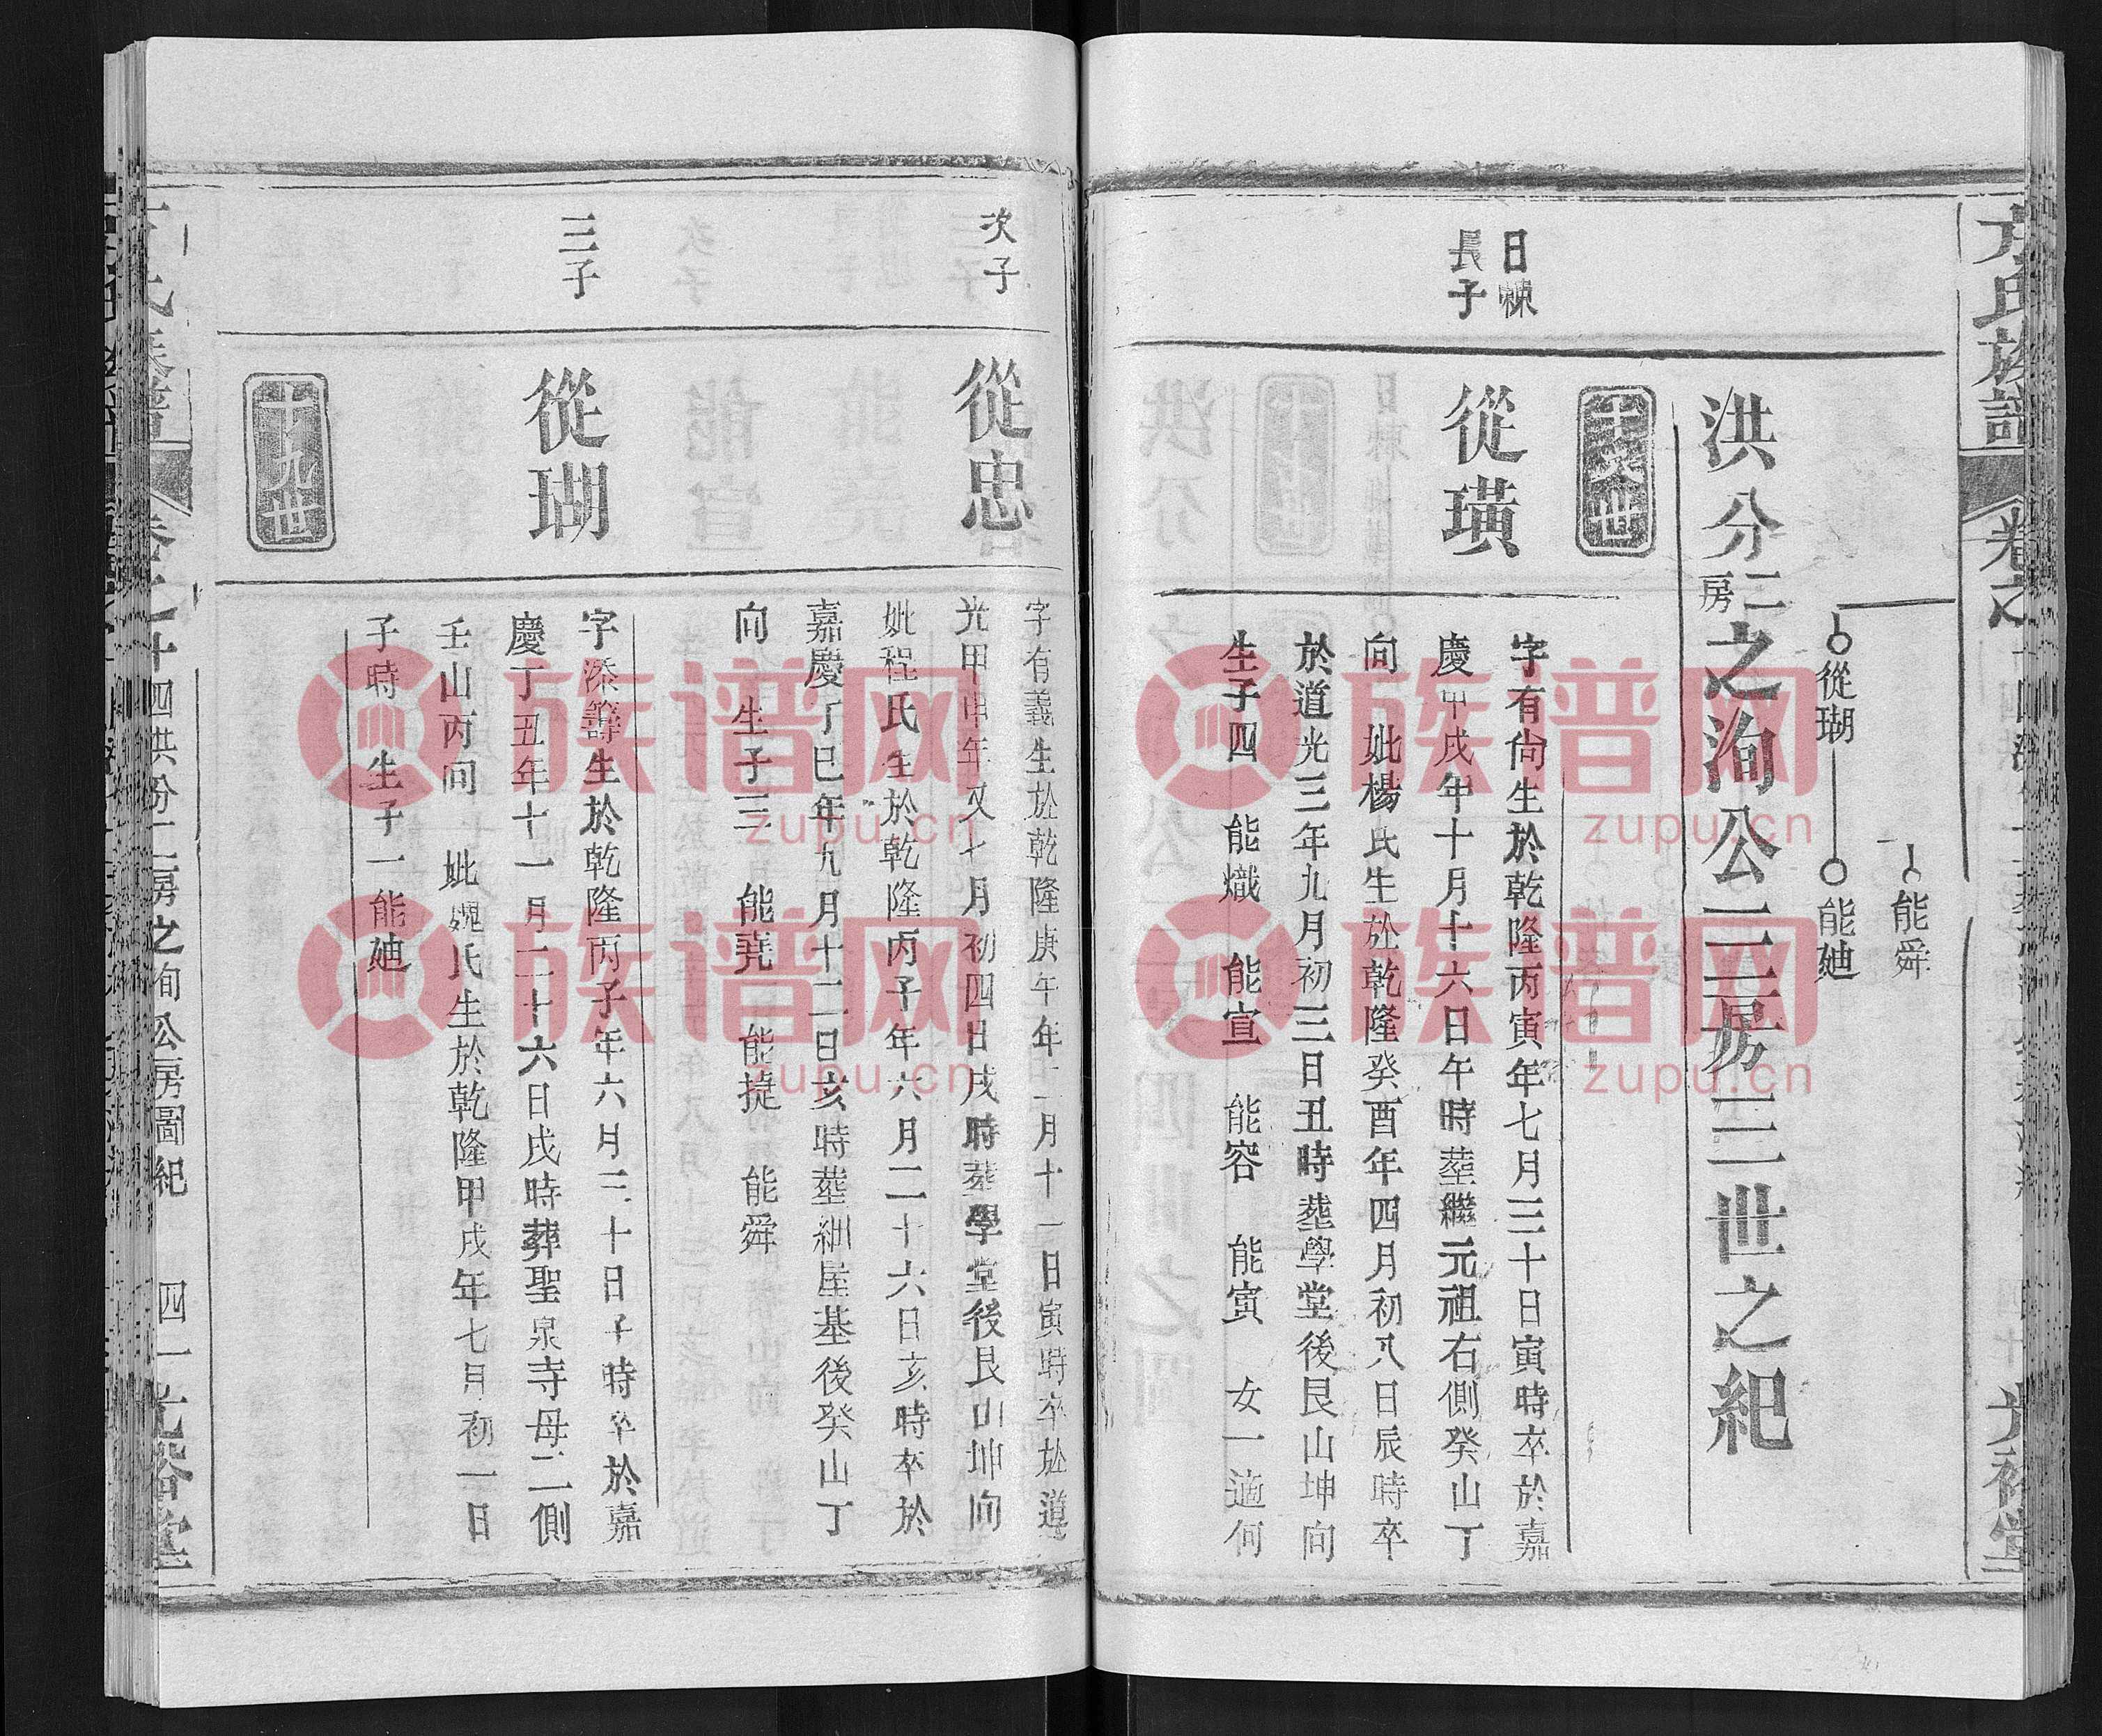 方氏族譜
卷之
光裕堂
能舜
從瑚 能廸
洪分二房之洵公二三房三世之紀
十八世
日㯤
長子
從璜
字有尙生於乾隆丙寅年七月三十日寅時卒於嘉
慶甲戌年十月十六日午時塟繼元祖右側癸山丁
向 妣楊氏生於乾隆癸酉年四月初八日辰時卒
於道光三年九月初三日丑時塟學堂後艮山坤向
生子四 能熾 能宣 能容 能寅 女一適何
次子
從忠
字有義生於乾隆庚午年二月十一日寅時卒於道
光甲申年又七月初四日戌時塟學堂後艮山坤向
妣程氏生於乾隆丙子年六月二十六日亥時卒於
嘉慶丁巳年九月十二日亥時塟細屋基後癸山丁
向 生子三 能堯 能㨗 能舜
三子
從瑚
字添籌生於乾隆丙子年六月三十日子時卒於嘉
慶丁丑年十一月二十六日戌時葬聖泉寺母二側
壬山丙向 妣魏氏生於乾隆甲戌年七月初一日
子時 生子一能廸
十九世
卷之十四洪份二房之洵公房圖紀 四一 光裕堂
族谱网
zupu.cn
族谱网
zupu.cn
族谱网
zupu.cn
族谱网
zupu.cn